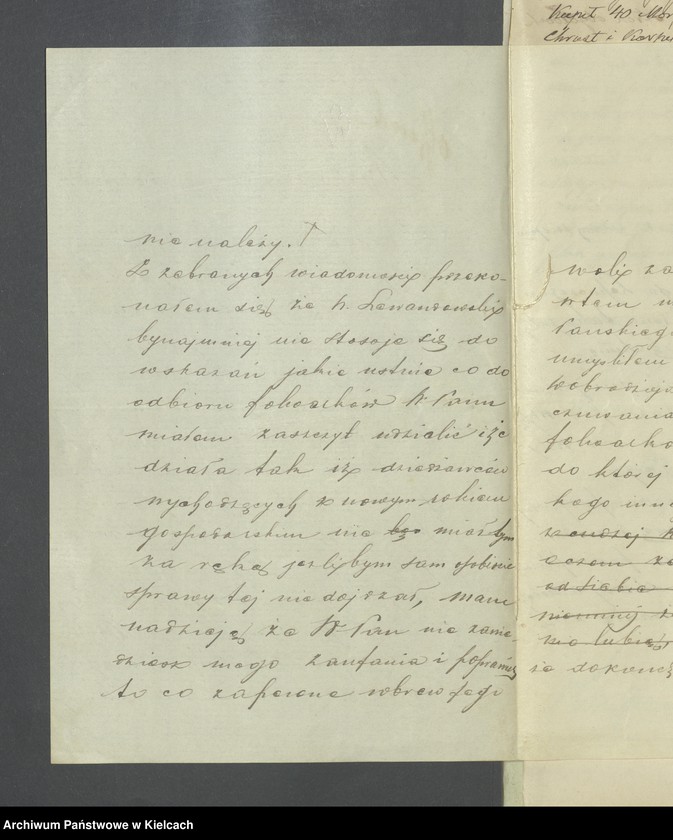 Kaput 40 Mor
Chrust i Karp
nie należy.
Z zebranych wiadomości przeko-
nałem się że P. Lewandowski
bynajmniej nie stosuje się do
wskazań jakie ustnie co do
odbioru folwarków W Panu
miałem zaszczyt udzielić i że
działa tak iż dzierżawców
wychodzących z nowym rokiem
gospodarskim nie miał bym
za ręką jeżelibym sam osobiście
sprawy tej nie dojrzał, mam
nadzieję że W Pan nie zawie
dziesz mego zaufania i poprawisz
to co zapewne wbrew Jego
woli za
Pańskiego
umyśliłem
Dobrodzieja
czuwania
folwarko
do której
kego inn
cudzej
czem za
od siebie
niemniej
lubię
się dokończ
Archiwum Państwowe w Kielcach